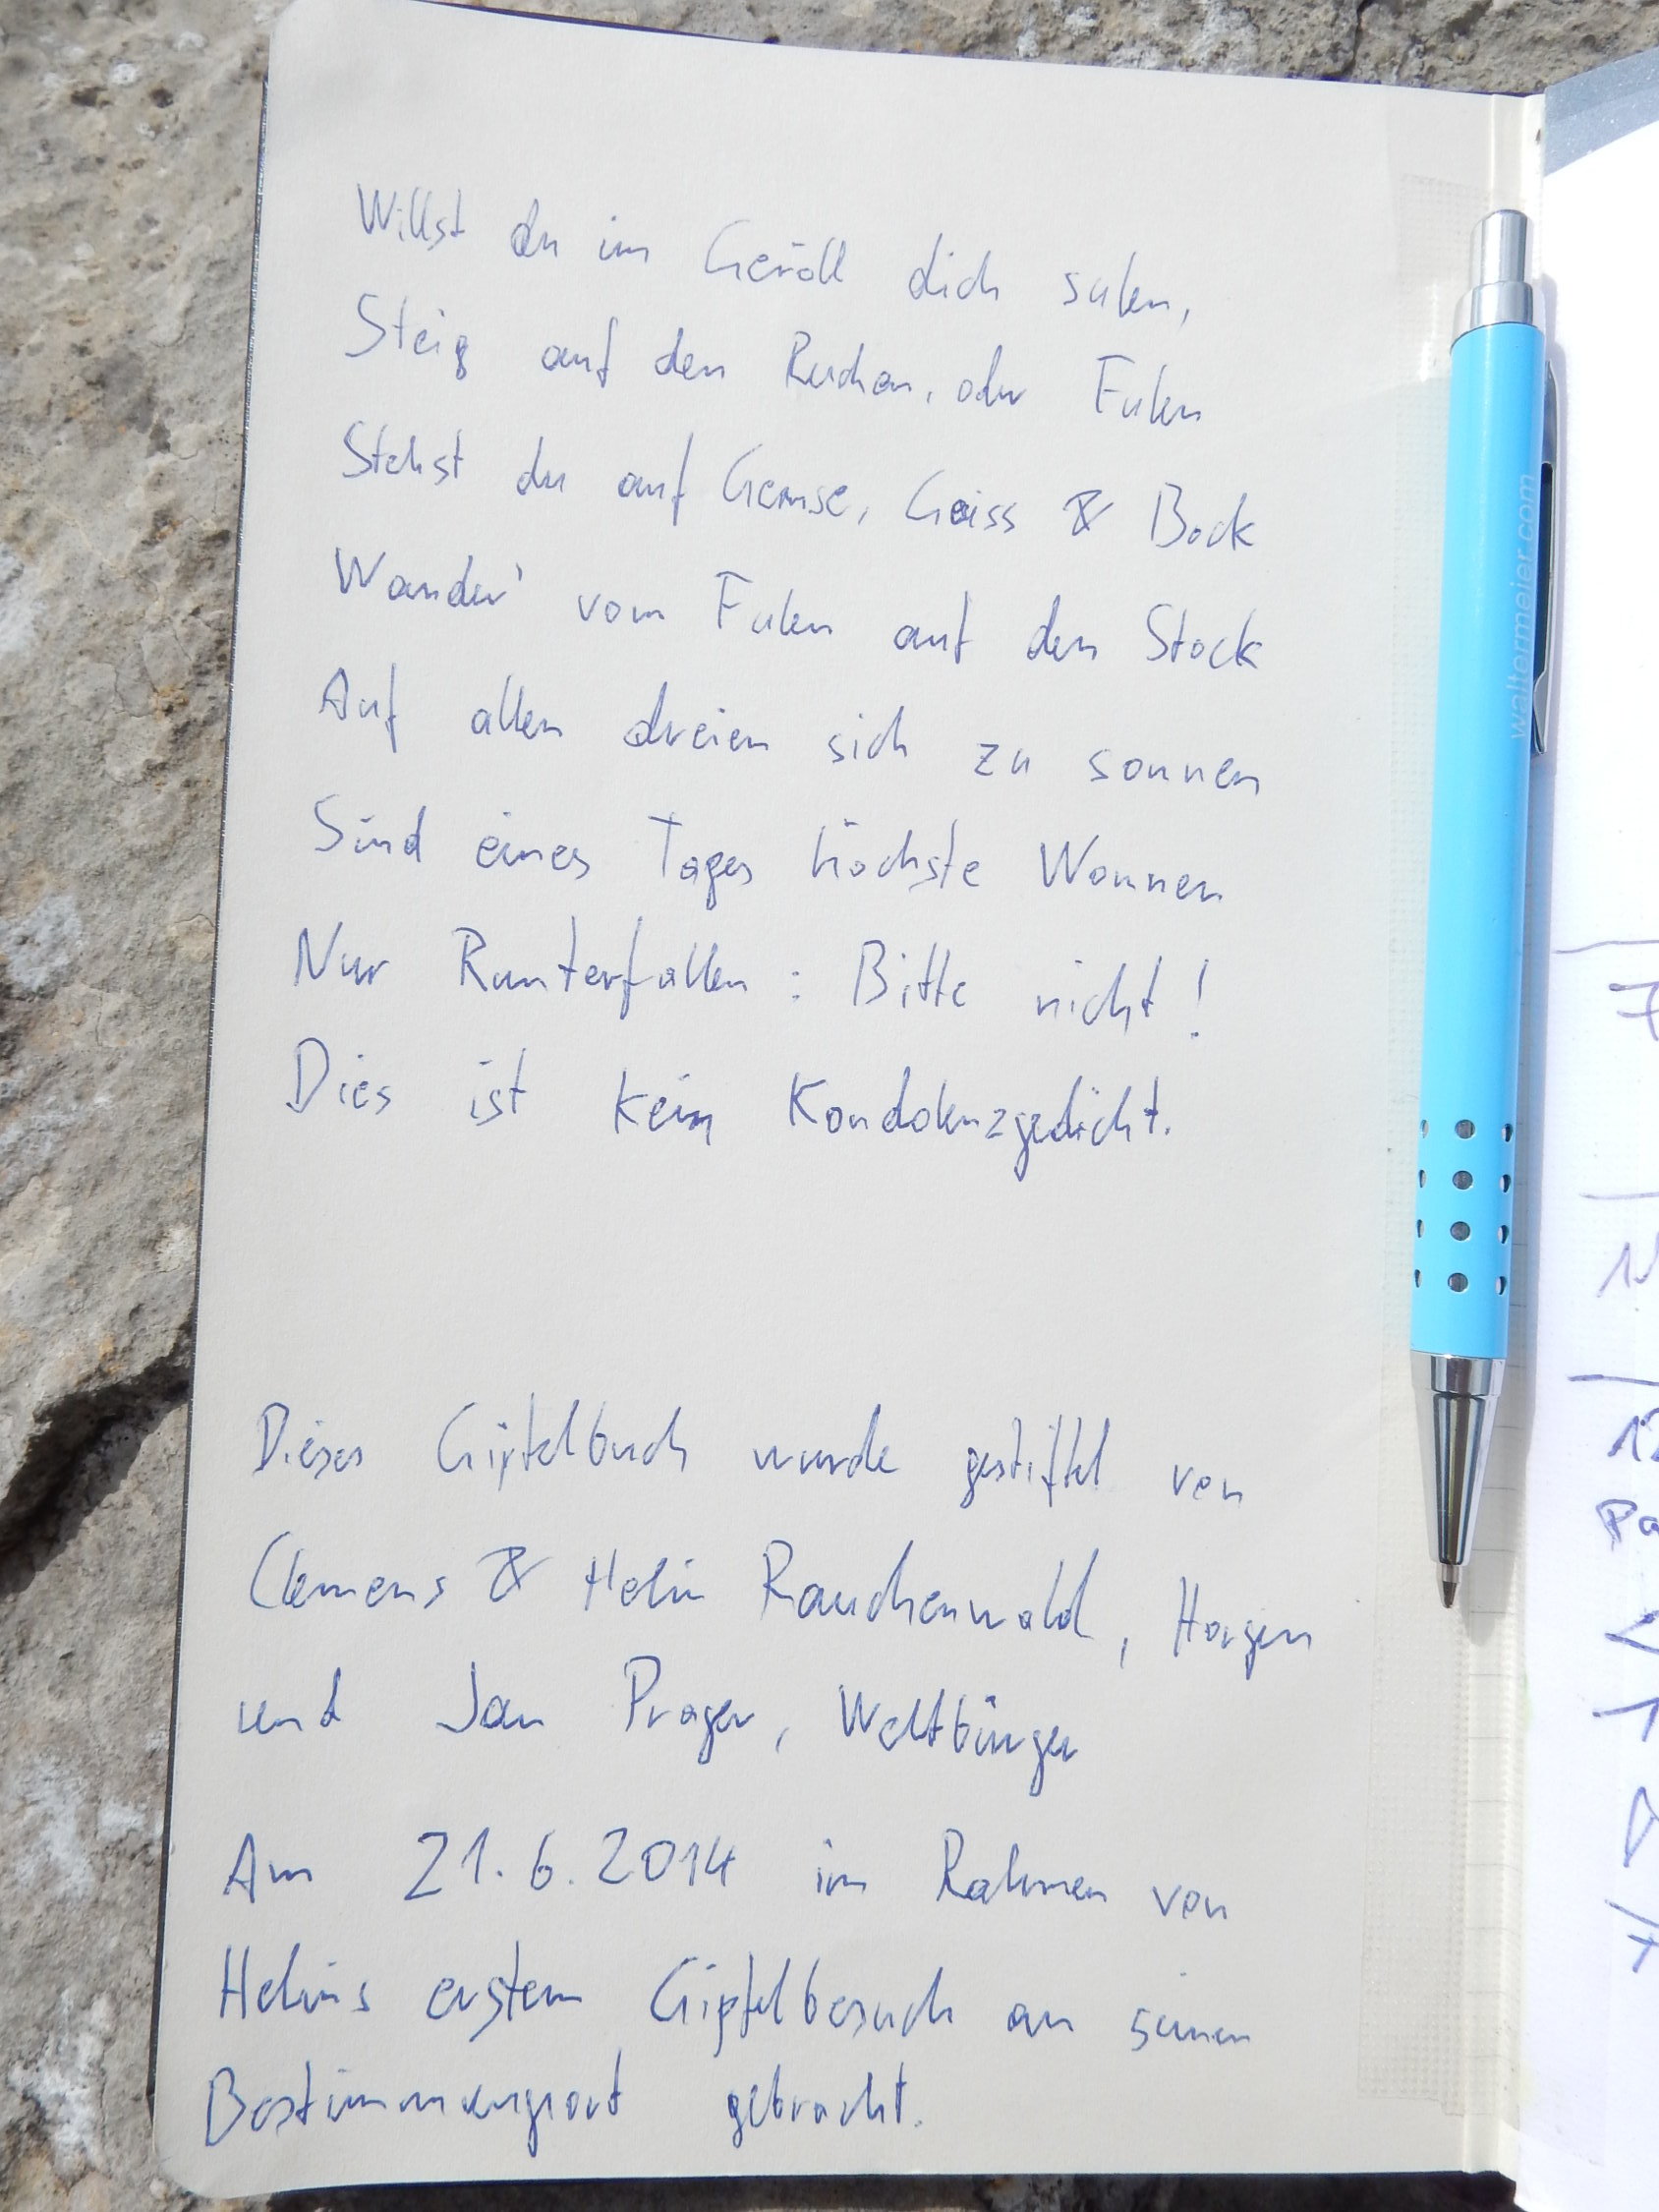 Willst du im Geröll dich sulen,
Steig auf den Ruchen, oder Fulen
Stehst du auf Gemse, Geiss & Bock
Wander' vom Fulen auf den Stock
Auf allen dreien sich zu sonnen
Sind eines Tages höchste Wonnen
Nur Runterfallen: Bitte nicht!
Dies ist kein Kondolenzgedicht.
Dieses Gipfelbuch wurde gestiftet von
Clemens & Helin Rauchenwald, Horgen
und Jan Prager, Weltbürger
Am 21.6.2014 im Rahmen von
Helins erstem Gipfelbesuch an seinen
Bestimmungsort gebracht.
waltermeier.com
7
12